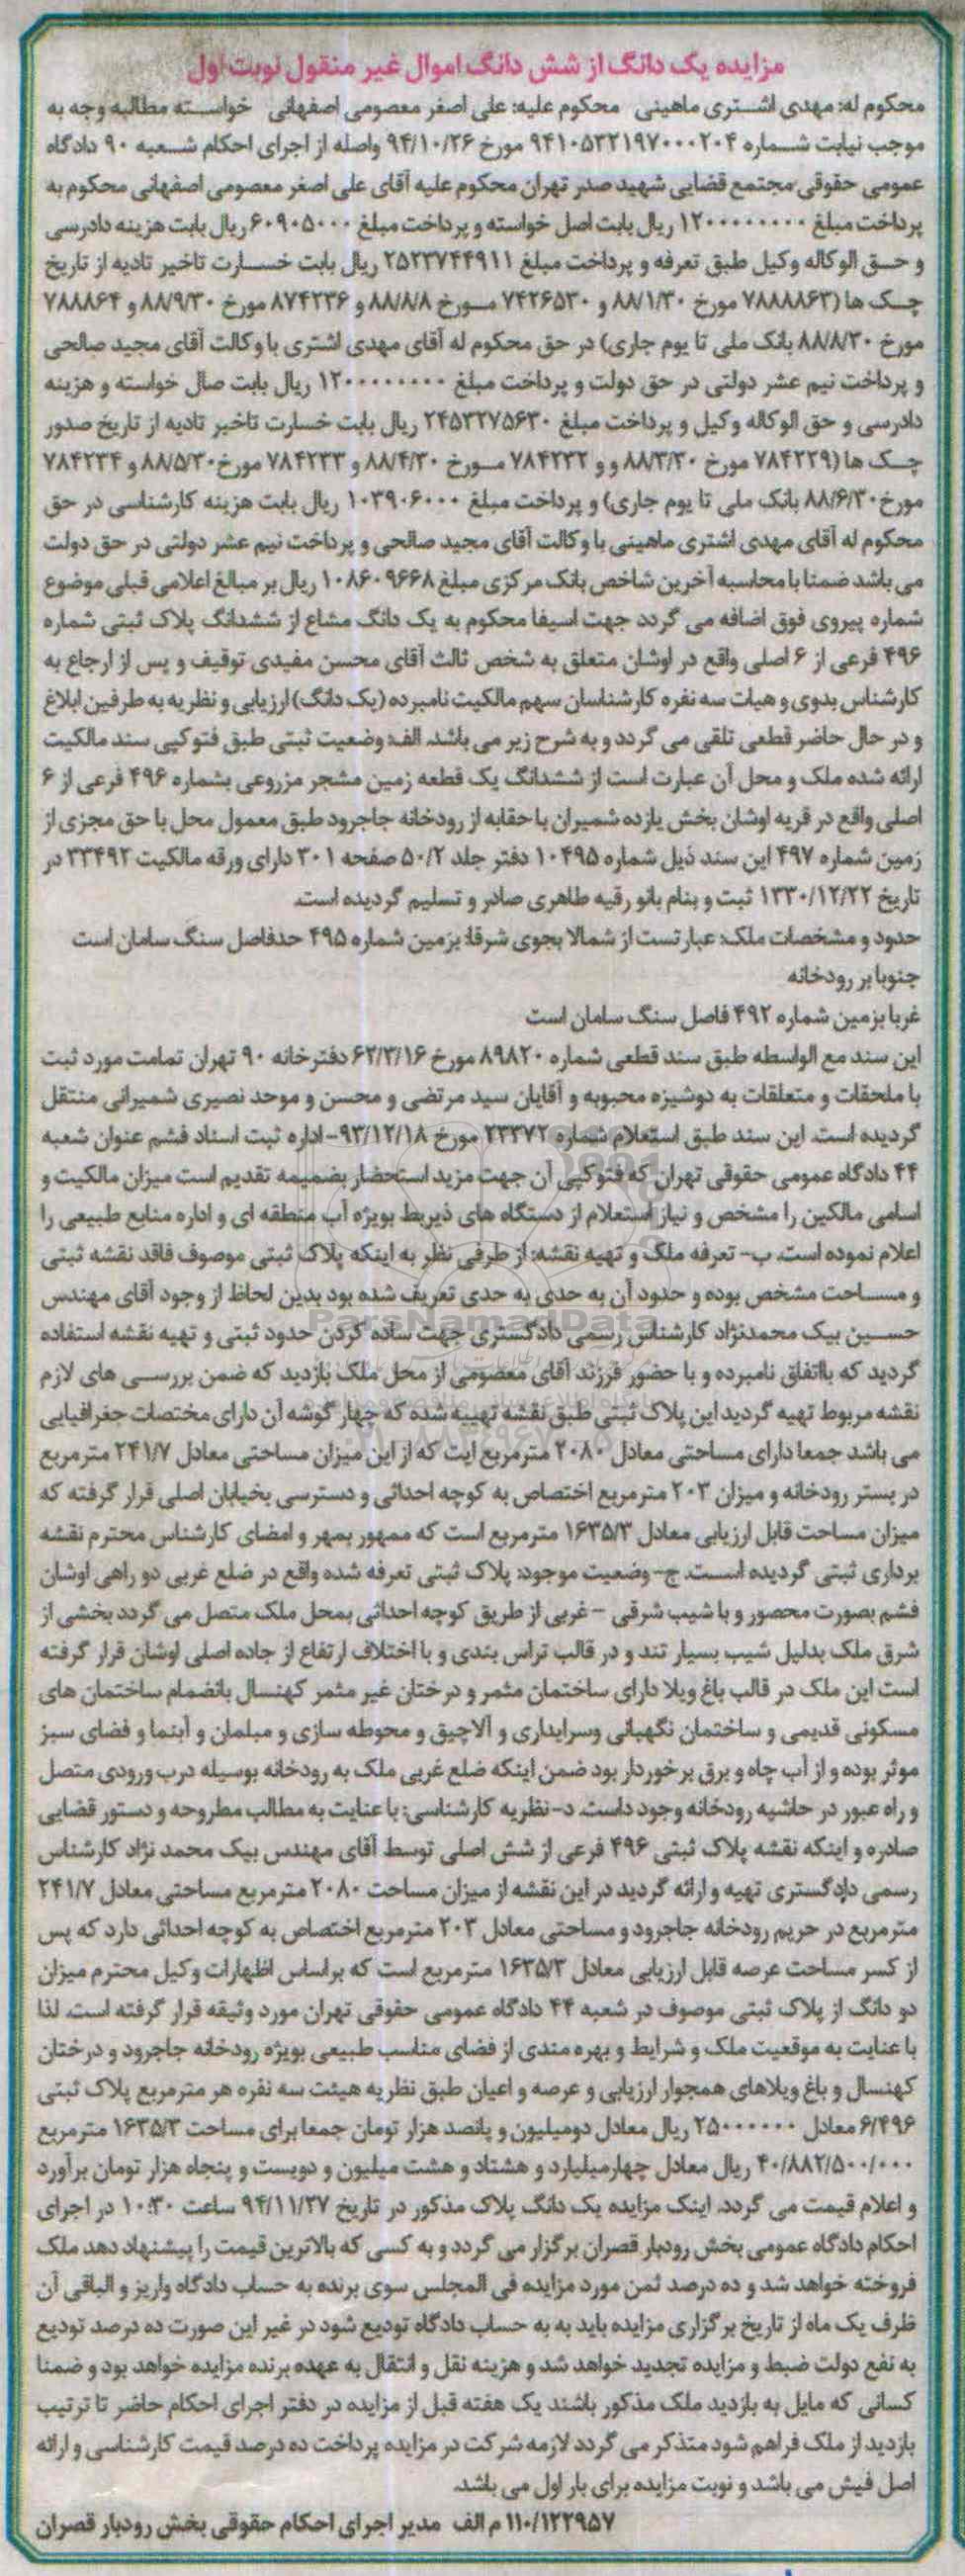 مزایده یک دانگ از شش دانگ اموال غیر منقول نوبت اول
محکوم له: مهدی اشتری ماهینی محکوم علیه: علی اصغر معصومی اصفهانی خواسته مطالبه وجه به
موجب نیابت شماره ۹۴۱۰۵۳۲۱۹۷۰۰۰۲۰۴ مورخ ۹۴/۱۰/۲۶ واصله از اجرای احکام شعبه ۹۰ دادگاه
عمومی حقوقی مجتمع قضایی شهید صدر تهران محکوم علیه آقای علی اصغر معصومی اصفهانی محکوم به
پرداخت مبلغ ۱۲۰۰۰۰۰۰۰۰ ریال بابت اصل خواسته و پرداخت مبلغ ۶۰۹۰۵۰۰۰ ریال بابت هزینه دادرسی
و حق الوکاله وکیل طبق تعرفه و پرداخت مبلغ ۲۵۲۳۷۴۴۹۱۱ ریال بابت خسارت تاخیر تادیه از تاریخ
چک ها (۷۸۸۸۸۶۳ مورخ ۸۸/۱/۳۰ و ۷۴۲۶۵۳۰ مورخ ۸۸/۸/۸ و ۸۷۴۲۳۶ مورخ ۸۸/۹/۳۰ و ۷۸۸۸۶۴
مورخ ۸۸/۸/۳۰ بانک ملی تا یوم جاری) در حق محکوم له آقای مهدی اشتری با وکالت آقای مجید صالحی
و پرداخت نیم عشر دولتی در حق دولت و پرداخت مبلغ ۱۲۰۰۰۰۰۰۰۰ ریال بابت صال خواسته و هزینه
دادرسی و حق الوکاله وکیل و پرداخت مبلغ ۲۴۵۳۲۷۵۶۳۰ ریال بابت خسارت تاخیر تادیه از تاریخ صدور
چک ها (۷۸۴۲۲۹ مورخ ۸۸/۳/۳۰ و و ۷۸۴۲۳۲ مورخ ۸۸/۴/۳۰ و ۷۸۴۲۳۳ مورخ ۸۸/۵/۳۰ و ۷۸۴۲۳۴
مورخ ۸۸/۶/۳۰ بانک ملی تا یوم جاری) و پرداخت مبلغ ۱۰۳۹۰۶۰۰۰ ریال بابت هزینه کارشناسی در حق
محکوم له آقای مهدی اشتری ماهینی با وکالت آقای مجید صالحی و پرداخت نیم عشر دولتی در حق دولت
می باشد ضمنا با محاسبه آخرین شاخص بانک مرکزی مبلغ ۱۰۸۶۰۹۶۶۸ ریال بر مبالغ اعلامی قبلی موضوع
شماره پیروی فوق اضافه می گردد جهت اسیفا محکوم به یک دانگ مشاع از ششدانگ پلاک ثبتی شماره
۴۹۶ فرعی از ۶ اصلی واقع در اوشان متعلق به شخص ثالث آقای محسن مفیدی توقیف و پس از ارجاع به
کارشناس بدوی و هیات سه نفره کارشناسان سهم مالکیت نامبرده (یک دانگ) ارزیابی و نظریه به طرفین ابلاغ
و در حال حاضر قطعی تلقی می گردد و به شرح زیر می باشد. الف: وضعیت ثبتی طبق فتوکپی سند مالکیت
ارائه شده ملک و محل آن عبارت است از ششدانگ یک قطعه زمین مشجر مزروعی بشماره ۴۹۶ فرعی از ۶
اصلی واقع در قریه اوشان بخش یازده شمیران با حقابه از رودخانه جاجرود طبق معمول محل با حق مجزی از
زمین شماره ۴۹۷ این سند ذیل شماره ۱۰۴۹۵ دفتر جلد ۵۰/۲ صفحه ۳۰۱ دارای ورقه مالکیت ۳۳۴۹۲ در
تاریخ ۱۳۳۰/۱۲/۲۲ ثبت و بنام بانو رقیه طاهری صادر و تسلیم گردیده است.
حدود و مشخصات ملک: عبارتست از شمالا بجوی شرقا: بزمین شماره ۴۹۵ حدفاصل سنگ سامان است
جنوبا بر رودخانه
غربا بزمین شماره ۴۹۲ فاصل سنگ سامان است
این سند مع الواسطه طبق سند قطعی شماره ۸۹۸۲۰ مورخ ۶۲/۳/۱۶ دفترخانه ۹۰ تهران تمامت مورد ثبت
با ملحقات و متعلقات به دوشیزه محبوبه و آقایان سید مرتضی و محسن و موحد نصیری شمیرانی منتقل
گردیده است. این سند طبق استعلام شماره ۲۳۳۷۲ مورخ ۹۳/۱۲/۱۸-اداره ثبت اسناد فشم عنوان شعبه
۴۴ دادگاه عمومی حقوقی تهران که فتوکپی آن جهت مزید استحضار بضمیمه تقدیم است میزان مالکیت و
اسامی مالکین را مشخص و نیاز استعلام از دستگاه های ذیربط بویژه آب منطقه ای و اداره منابع طبیعی را
اعلام نموده است. ب- تعرفه ملک و تهیه نقشه: از طرفی نظر به اینکه پلاک ثبتی موصوف فاقد نقشه ثبتی
و مساحت مشخص بوده و حدود آن به حدی به حدی تعریف شده بود بدین لحاظ از وجود آقای مهندس
حسین بیک محمدنژاد کارشناس رسمی دادگستری جهت ساده کردن حدود ثبتی و تهیه نقشه استفاده
گردید که بااتفاق نامبرده و با حضور فرزند آقای معصومی از محل ملک بازدید که ضمن بررسی های لازم
نقشه مربوط تهیه گردید این پلاک ثبتی طبق نقشه تهییه شده که چهار گوشه آن دارای مختصات جغرافیایی
می باشد جمعا دارای مساحتی معادل ۲۰۸۰ مترمربع ایت که از این میزان مساحتی معادل ۲۴۱/۷ مترمربع
در بستر رودخانه و میزان ۲۰۳ مترمربع اختصاص به کوچه احداثی و دسترسی بخیابان اصلی قرار گرفته که
میزان مساحت قابل ارزیابی معادل ۱۶۳۵/۳ مترمربع است که ممهور بمهر و امضای کارشناس محترم نقشه
برداری ثبتی گردیده است. ج- وضعیت موجود: پلاک ثبتی تعرفه شده واقع در ضلع غربی دو راهی اوشان
فشم بصورت محصور و با شیب شرقی - غربی از طریق کوچه احداثی بمحل ملک متصل می گردد بخشی از
شرق ملک بدلیل شیب بسیار تند و در قالب تراس بندی و با اختلاف ارتفاع از جاده اصلی اوشان قرار گرفته
است این ملک در قالب باغ ویلا دارای ساختمان مثمر و درختان غیر مثمر کهنسال بانضمام ساختمان های
مسکونی قدیمی و ساختمان نگهبانی وسرایداری و آلاچیق و محوطه سازی و مبلمان و آبنما و فضای سبز
موثر بوده و از آب چاه و برق برخوردار بود ضمن اینکه ضلع غربی ملک به رودخانه بوسیله درب ورودی متصل
و راه عبور در حاشیه رودخانه وجود داست. د-نظریه کارشناسی: با عنایت به مطالب مطروحه و دستور قضایی
صادره و اینکه نقشه پلاک ثبتی ۴۹۶ فرعی از شش اصلی توسط آقای مهندس بیک محمد نژاد کارشناس
رسمی دادگستری تهیه و ارائه گردید در این نقشه از میزان مساحت ۲۰۸۰ مترمربع مساحتی معادل ۲۴۱/۷
مترمربع در حریم رودخانه جاجرود و مساحتی معادل ۲۰۳ مترمربع اختصاص به کوچه احداثی دارد که پس
از کسر مساحت عرصه قابل ارزیابی معادل ۱۶۳۵/۳ مترمربع است که براساس اظهارات وکیل محترم میزان
دو دانگ از پلاک ثبتی موصوف در شعبه ۴۴ دادگاه عمومی حقوقی تهران مورد وثیقه قرار گرفته است. لذا
با عنایت به موقعیت ملک و شرایط و بهره مندی از فضای مناسب طبیعی بویژه رودخانه جاجرود و درختان
کهنسال و باغ ویلاهای همجوار ارزیابی و عرصه و اعیان طبق نظریه هیئت سه نفره هر مترمربع پلاک ثبتی
۶/۴۹۶ معادل ۲۵۰۰۰۰۰۰ ریال معادل دومیلیون و پانصد هزار تومان جمعا برای مساحت ۱۶۳۵/۳ مترمربع
۴۰/۸۸۲/۵۰۰/۰۰۰ ریال معادل چهارمیلیارد و هشتاد و هشت میلیون و دویست و پنجاه هزار تومان برآورد
و اعلام قیمت می گردد. اینک مزایده یک دانگ پلاک مذکور در تاریخ ۹۴/۱۱/۲۷ ساعت ۱۰:۳۰ در اجرای
احکام دادگاه عمومی بخش رودبار قصران برگزار می گردد و به کسی که بالاترین قیمت را پیشنهاد دهد ملک
فروخته خواهد شد و ده درصد ثمن مورد مزایده فی المجلس سوی برنده به حساب دادگاه واریز و الباقی آن
ظرف یک ماه از تاریخ برگزاری مزایده باید به به حساب دادگاه تودیع شود در غیر این صورت ده درصد تودیع
به نفع دولت ضبط و مزایده تجدید خواهد شد و هزینه نقل و انتقال به عهده برنده مزایده خواهد بود و ضمنا
کسانی که مایل به بازدید ملک مذکور باشند یک هفته قبل از مزایده در دفتر اجرای احکام حاضر تا ترتیب
بازدید از ملک فراهم شود متذکر می گردد لازمه شرکت در مزایده پرداخت ده درصد قیمت کارشناسی و ارائه
اصل فیش می باشد و نوبت مزایده برای بار اول می باشد.
۱۱۰/۱۲۲۹۵۷ م الف مدیر اجرای احکام حقوقی بخش رودبار قصران
ParsNamadData